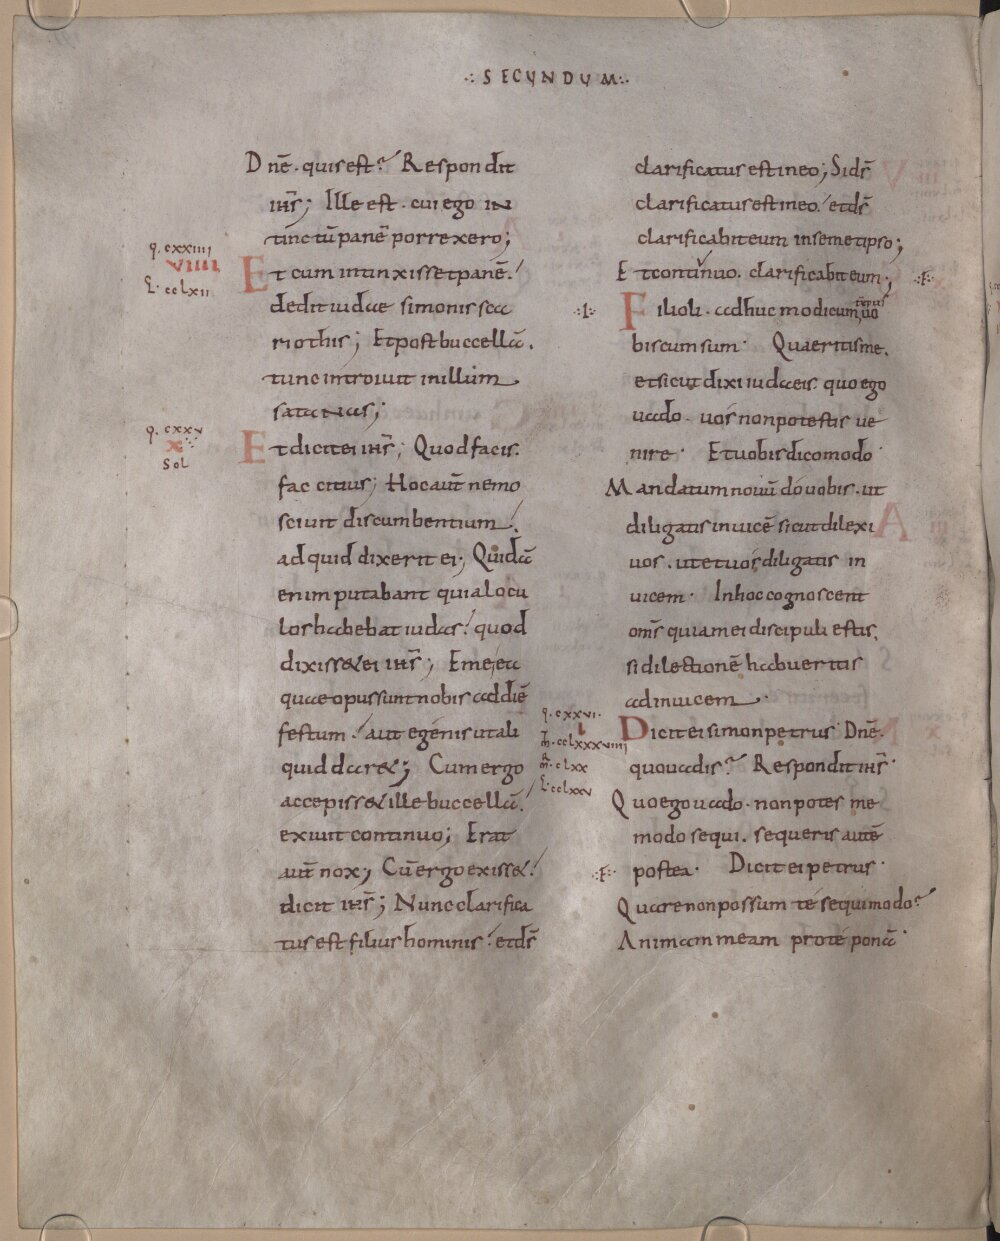 ·:SECUNDUM:·
Dnē. quis est? Respondit
ihs̄; Ille est. cui ego in
tinctū panē porrexero;
q. cxxiiii
VIIII
L. cclxii
Et cum intinxisset panē.
dedit iudae simonis sca
riothis; Et post buccellā.
tunc introiuit in illum
satanas;
q. cxxv
X
Sol
Et dicit ei ihs̄; Quod facis.
fac citius; Hoc aut̄ nemo
sciuit discumbentium.
ad quid dixerit ei; Quidā
enim putabant quia locu
los habebat iudas. quod
dixisset ei ihs̄; Eme ea
quae opus sunt nobis ad diē
festum. aut egenis ut ali
quid daret; Cum ergo
accepisset ille buccellā.
exiuit continuo; Erat
aut̄ nox; Cū ergo exisset.
dicit ihs̄; Nunc clarifica
tus est filius hominis. et ds̄
clarificatus est in eo; Si ds̄
clarificatus est in eo. et ds̄
clarificabit eum in semetipso;
Et continuo. clarificabit eum;
Filioli. adhuc modicum uo
biscum sum. Quaeritis me.
et sicut dixi iudaeis. quo ego
uado. uos non potestis ue
nire. Et uobis dico modo
Mandatum nouū do uobis. ut
diligatis inuicē sicut dilexi
uos. ut et uos diligatis in
uicem. In hoc cognoscent
oms̄ quia mei discipuli estis.
si dilectionē habueritis
ad inuicem.
q. cxxvi.
I
m̄. cclxxxviiii
m̄r. clxx
L. cclxxv
Dicit ei simon petrus. Dnē.
quo uadis? Respondit ihs̄.
Quo ego uado. non potes me
modo sequi. sequeris autē
postea. Dicit ei petrus.
Quare non possum te sequi modo?
Animam meam pro te ponā.